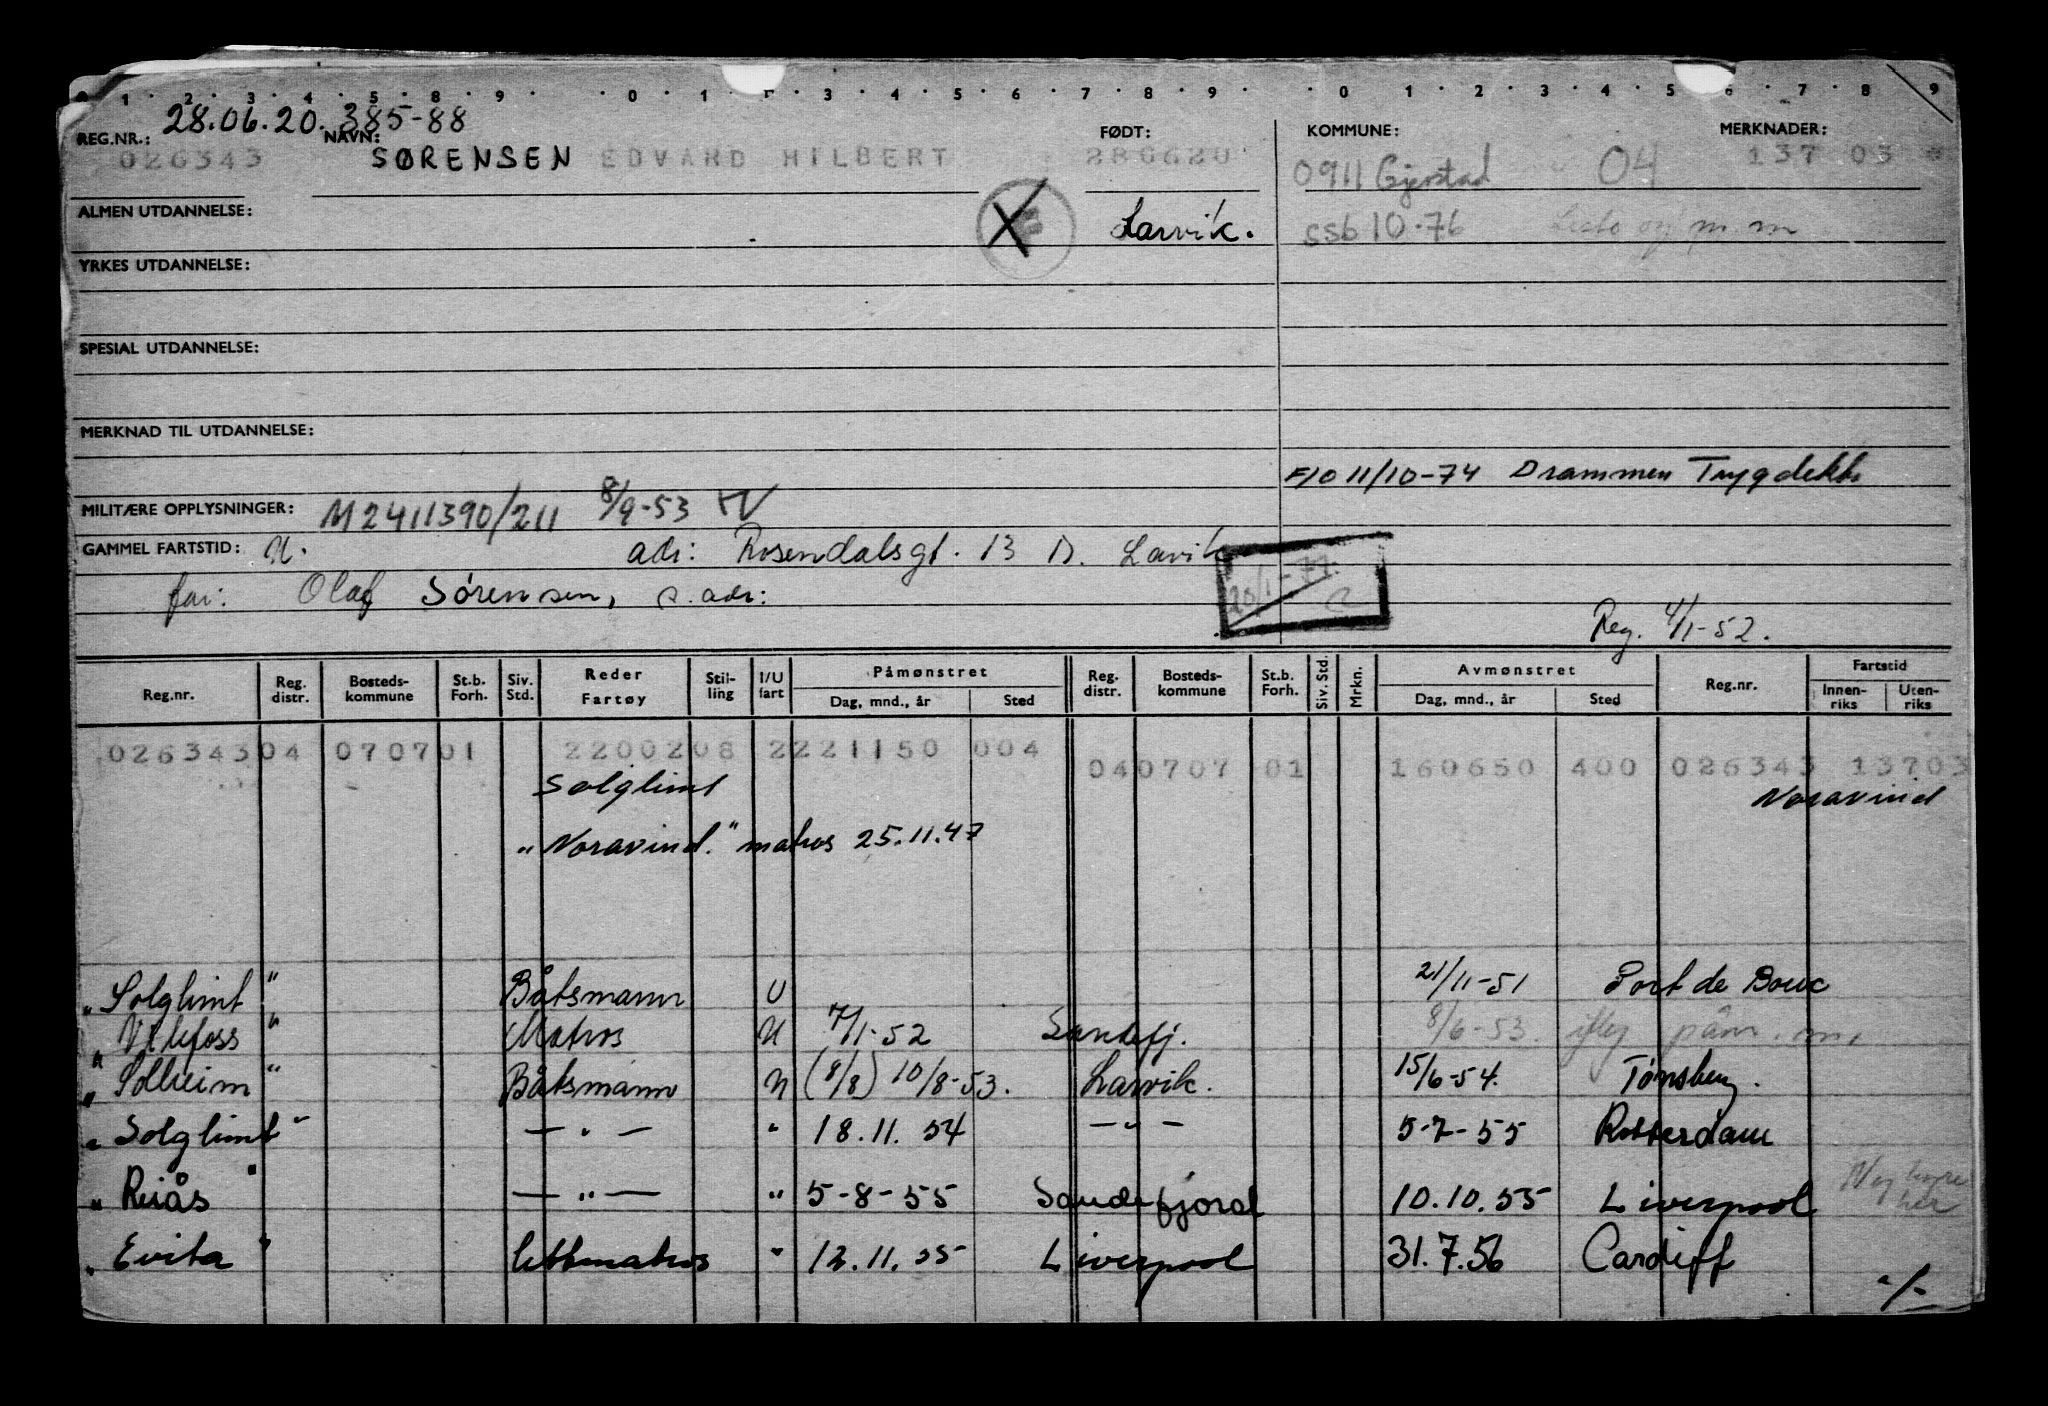 1 2 3 4 5 8 9 0 1 3 4 5 6 7 8 9 0 1 2 3 4 5 6 7 8 9
28.06.20. 385-88
REG.NR.: NAVN: FØDT: KOMMUNE: MERKNADER:
026343 SØRENSEN EDVARD HILBERT 280620 0911 Gjerstad 04 137 03
ALMEN UTDANNELSE: Larvik. SSB 10-76
YRKES UTDANNELSE:
SPESIAL UTDANNELSE:
MERKNAD TIL UTDANNELSE:
F/O 11/10-74 Drammen Trygdekt.
MILITÆRE OPPLYSNINGER: M2411390/211 8/9-53
GAMMEL FARTSTID: U. adr: Rosendalsgt. 13 Larvik
far: Olaf Sørensen, s. adr:
Reg. 4/1-52.
Reder Påmønstret Avmønstret Fartstid
Reg.nr. Reg. distr. Bosteds-kommune St.b. Forh. Siv. Std. Fartøy Stil-ling I/U fart Dag, mnd., år Sted Reg. distr. Bosteds-kommune St.b. Forh. Siv. Std. Mrkn. Dag, mnd., år Sted Reg.nr. Innen-riks Uten-riks
02634304 070701 2200208 2221150 004 040707 01 160650 400 026343 13703
Solglimt Noravind
"Noravind." matros 25.11.47
"Solglimt" Båtsmann U 21/11-51 Port de Bouc
"Vilefoss" Matros U 7/1-52 Sandefj. 8/6-53. påm.
"Solheim" Båtsmann U (8/8) 10/8-53. Larvik. 15/6-54. Tønsberg.
"Solglimt" — " — " 18.11.54 — " — 5-7-55 Rotterdam
"Reiås" — " — " 5-8-55 Sandefjord 10.10.55 Liverpool
"Evita" lettmatros " 12.11.55 Liverpool 31.7.56 Cardiff